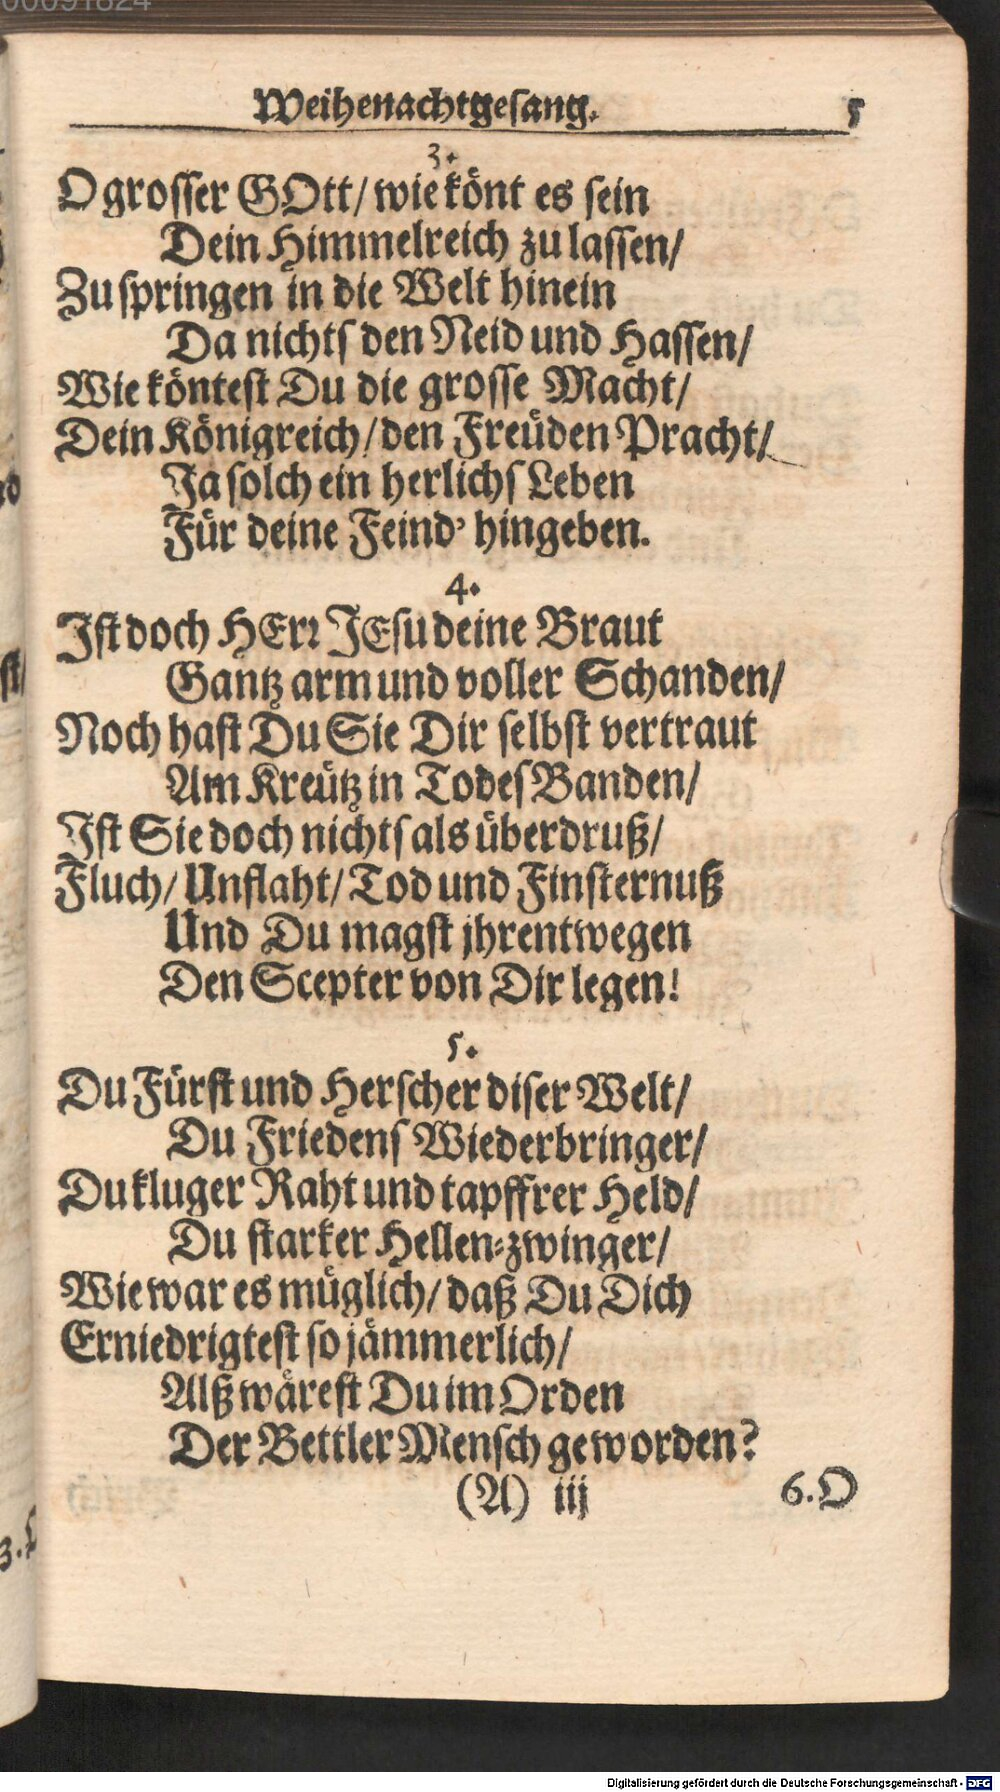 00091824
Weihenachtgesang. 5
3.
O grosser GOtt/ wie könt es sein
Dein Himmelreich zu lassen/
Zu springen in die Welt hinein
Da nichts den Neid und Hassen/
Wie köntest Du die grosse Macht/
Dein Königreich/ den Freüden Pracht/
Ja solch ein herlichs Leben
Für deine Feind' hingeben.
4.
Ist doch HErr JEsu deine Braut
Gantz arm und voller Schanden/
Noch hast Du Sie Dir selbst vertraut
Am Kreütz in Todes Banden/
Ist Sie doch nichts als überdruß/
Fluch/ Unflaht/ Tod und Finsternuß
Und Du magst jhrentwegen
Den Scepter von Dir legen!
5.
Du Fürst und Herscher diser Welt/
Du Friedens Wiederbringer/
Du kluger Raht und tapffrer Held/
Du starker Hellen-zwinger/
Wie war es müglich/ daß Du Dich
Erniedrigtest so jämmerlich/
Alß wärest Du im Orden
Der Bettler Mensch geworden?
(A) iij 6. O
Digitalisierung gefördert durch die Deutsche Forschungsgemeinschaft - DFG